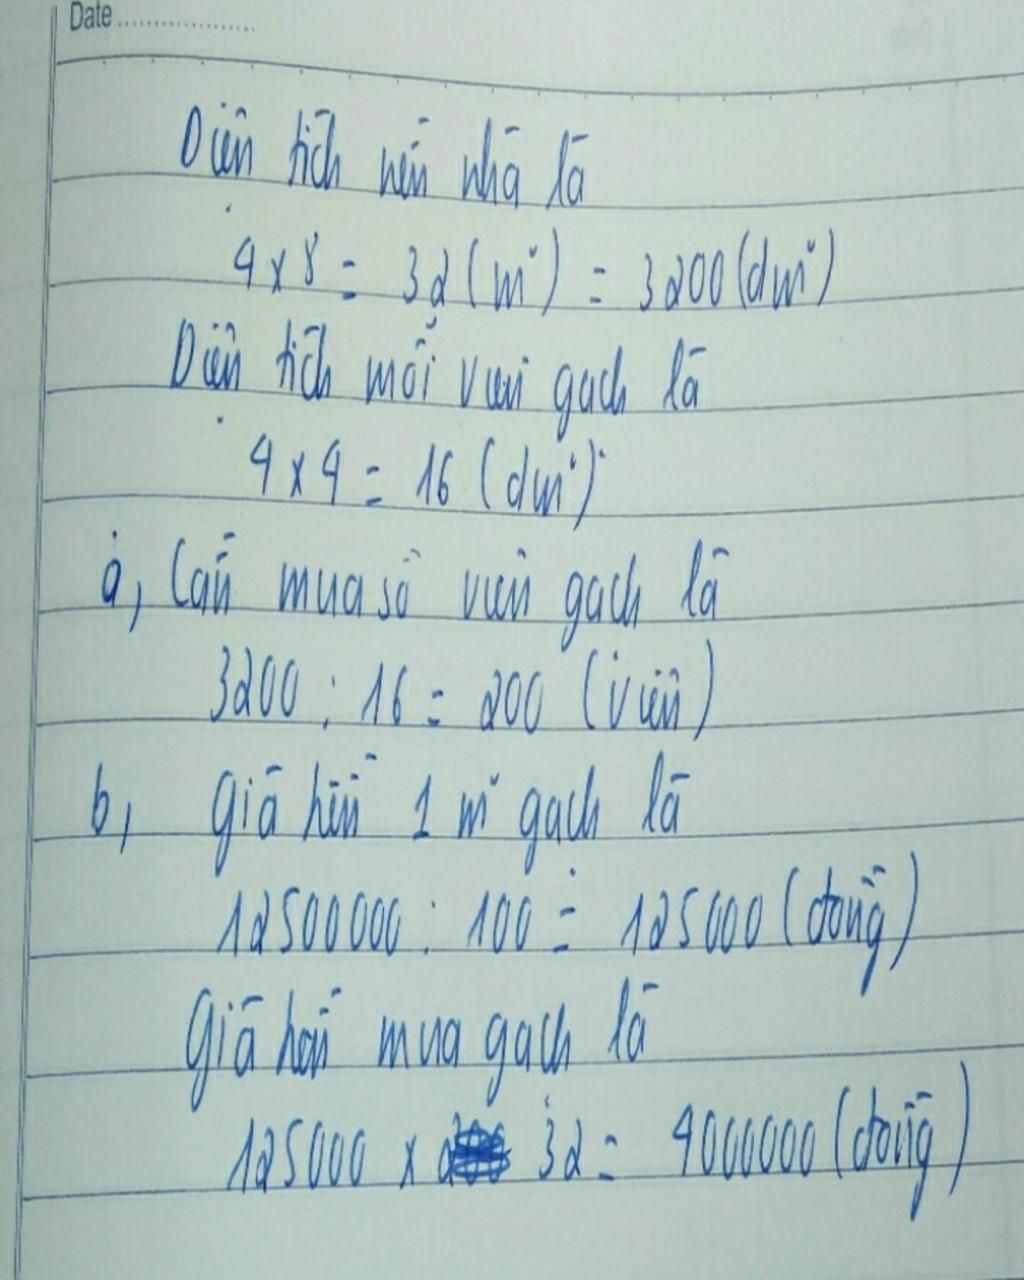 Date
Diện tích nền nhà là
4 x 8 = 32 (m²) = 3200 (dm²)
Diện tích mỗi viên gạch là
4 x 4 = 16 (dm²)
a, Cần mua số viên gạch là
3200 : 16 = 200 (viên)
b, Giá tiền 1 m² gạch là
12500000 : 100 = 125000 (đồng)
Giá tiền mua gạch là
125000 x 32 = 4000000 (đồng)